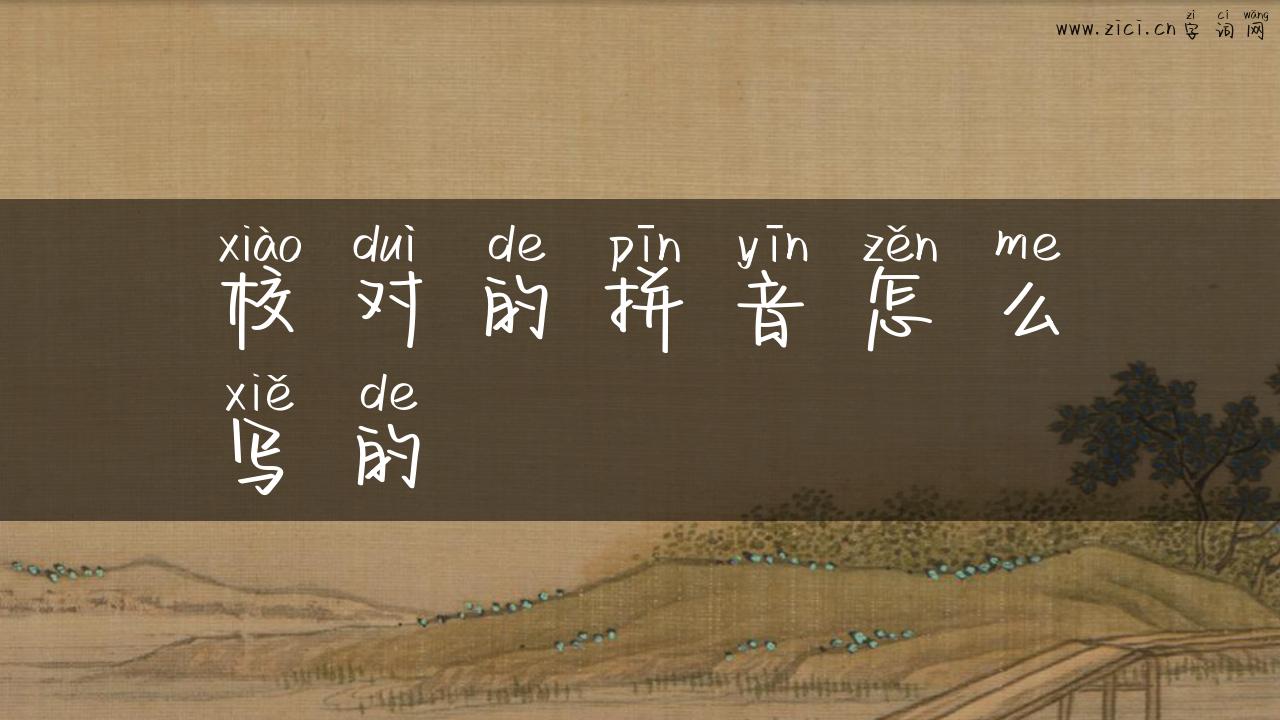 zì cí wǎng
www.zici.cn 字 词 网
xiào duì de pīn yīn zěn me
校 对 的 拼 音 怎 么
xiě de
写 的